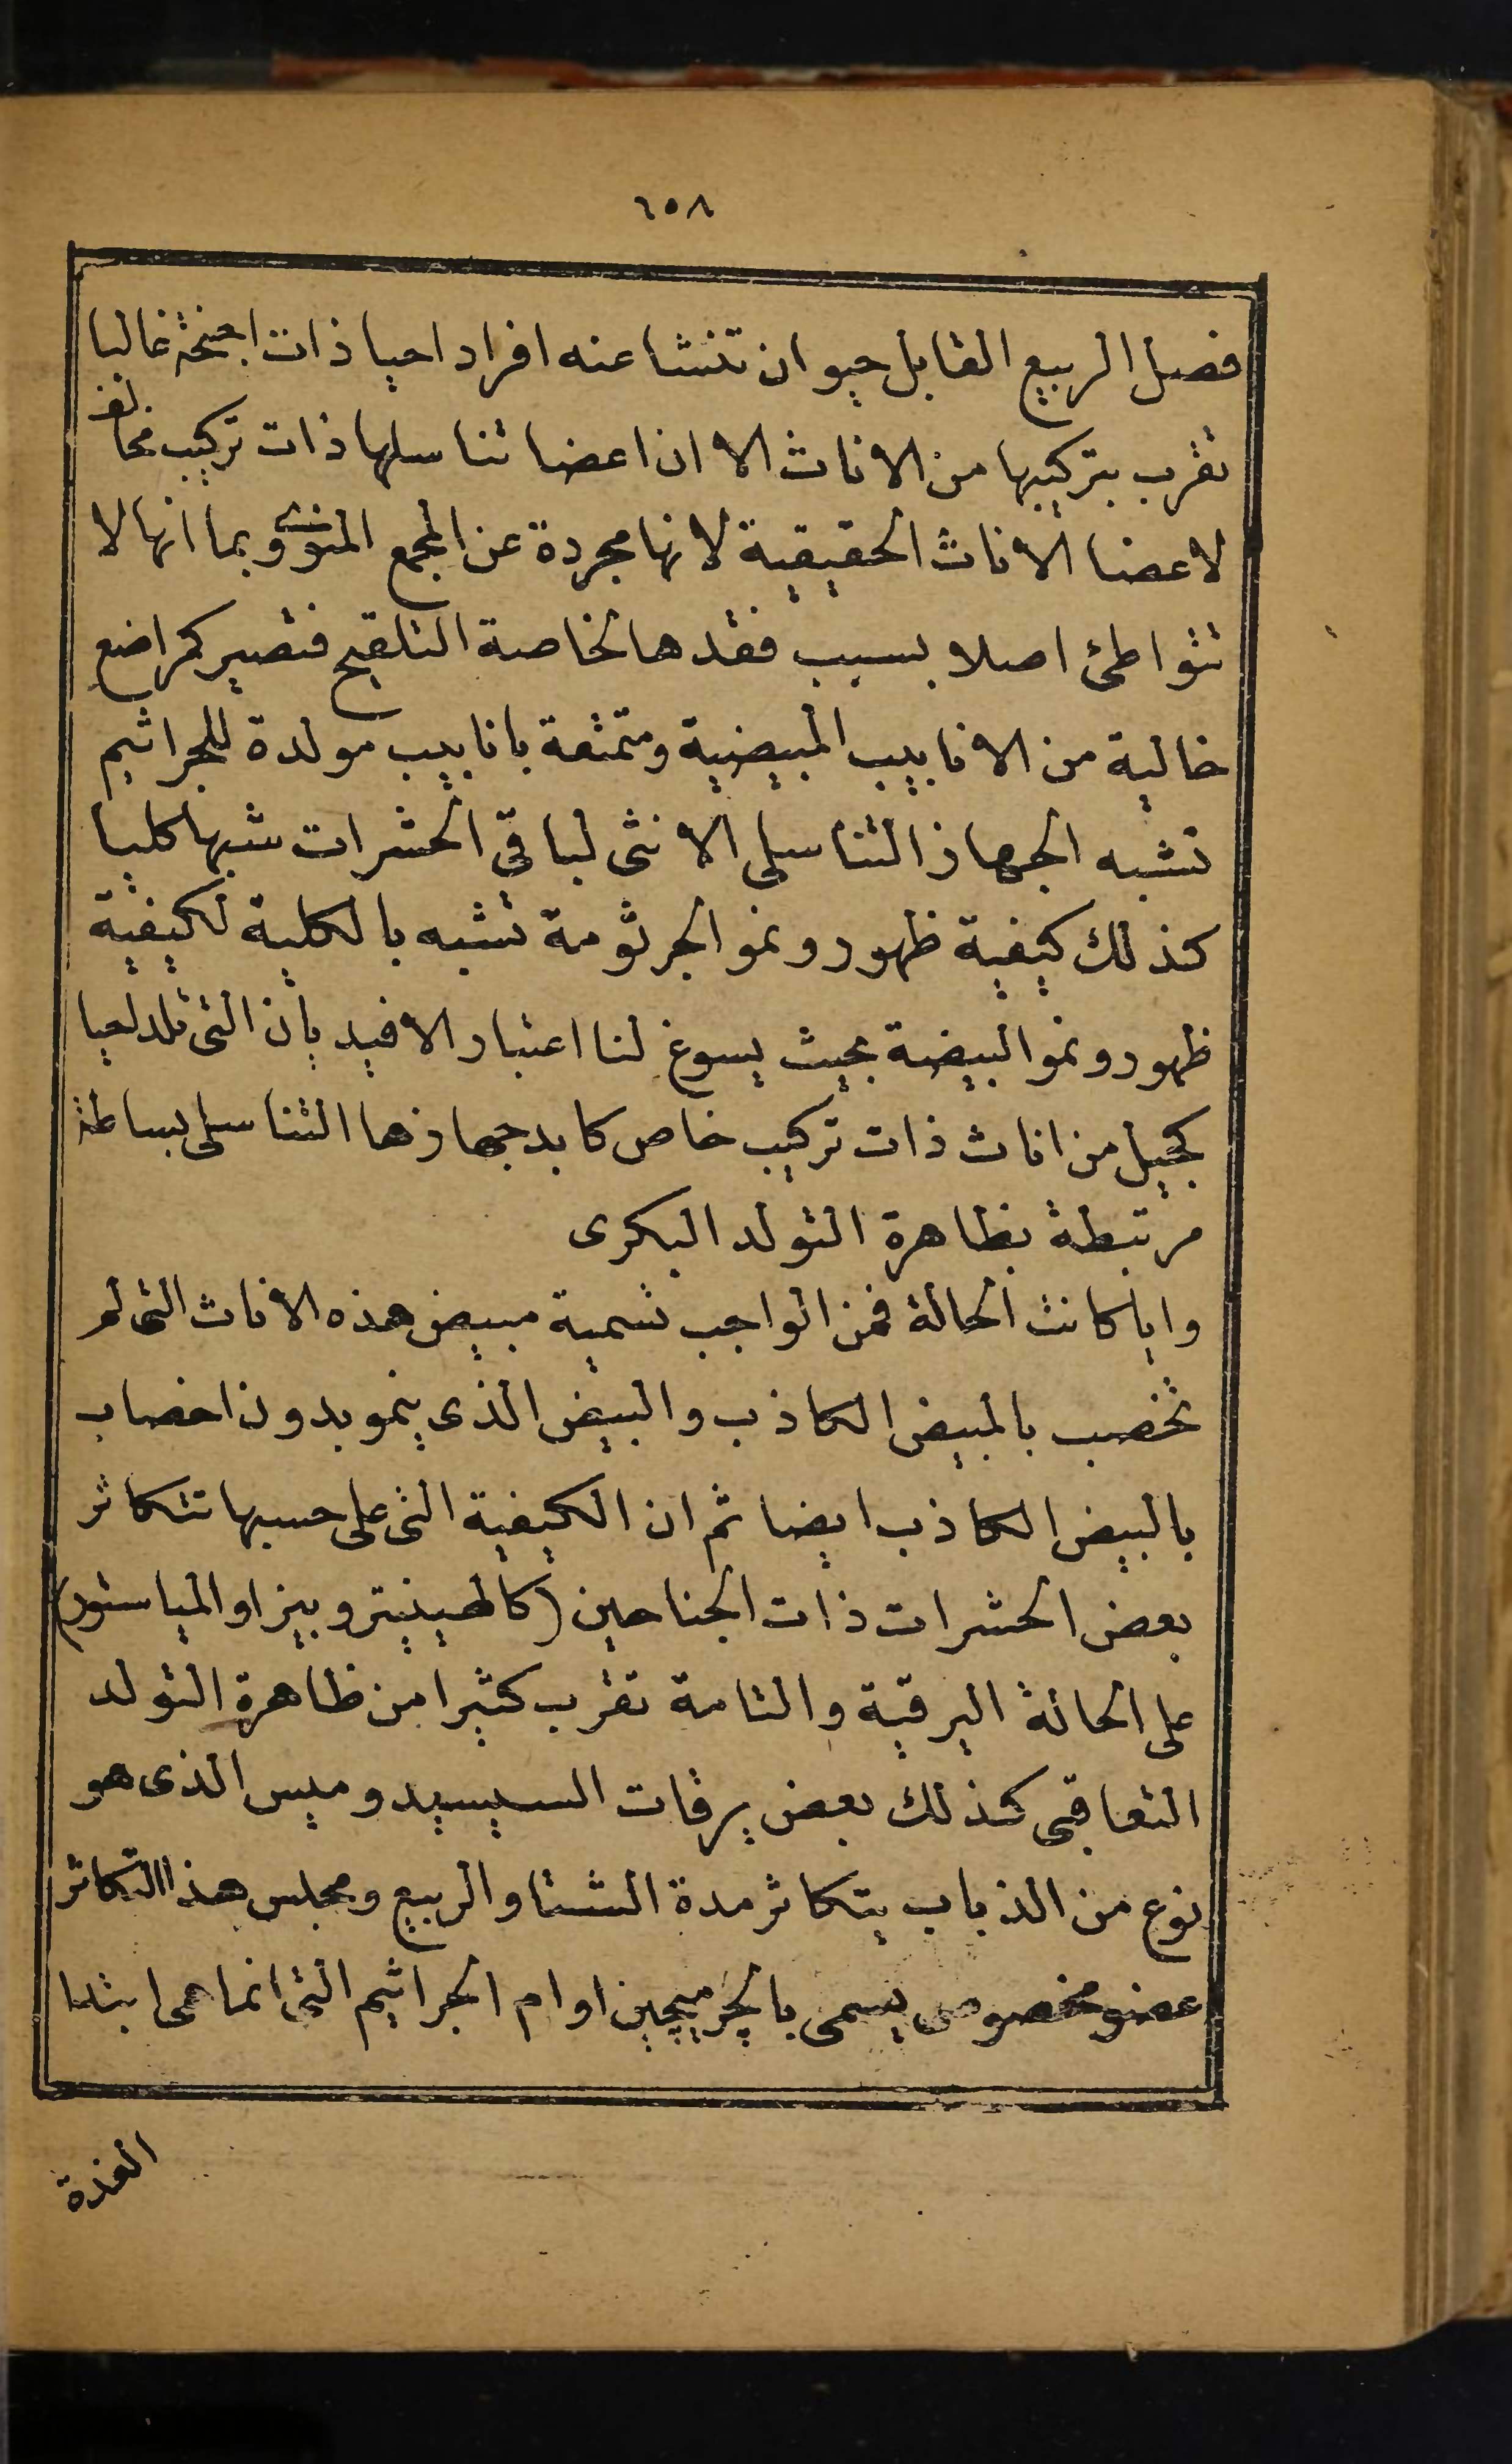 ٦٥٨
فصل الربيع القابل حيوان تنشا عنه افراد احيا ذات اجنحة غالبا
تقرب بتركيبها من الاناث الا ان اعضا تناسلها ذات تركيب مخالف
لاعضا الاناث الحقيقية لانها مجردة عن المجمع المنوى وبما انها لا
تتواطئ اصلا بسبب فقدها لخاصة التلقيح فتصير كمراضع
خالية من الانابيب المبيضية ومتمتعة بانابيب مولدة للجراثيم
تشبه الجهاز التناسلى الانثى لباقى الحشرات شبها كليا
كذلك كيفية ظهور ونمو الجرثومة تشبه بالكلية لكيفية
ظهور ونمو البيضة بحيث يسوغ لنا اعتبار الافيد بان التى تلد لحيا
كجيل من اناث ذات تركيب خاص كابد جهازها التناسلى بساطة
مرتبطة بظاهرة التولد البكرى
وايا كانت الحالة فمن الواجب تسمية مبيض هذه الاناث التى لم
تخصب بالمبيض الكاذب والبيض الذى ينمو بدون اخصاب
بالبيض الكاذب ايضا ثم ان الكيفية التى على حسبها تتكاثر
بعض الحشرات ذات الجناحين (كالهيتيتروبيزا والمياستور)
على الحالة اليرقية والتامة تقرب كثيرا من ظاهرة التولد
التعاقبى كذلك بعض يرقات السيسيدوميس الذى هو
نوع من الذباب يتكاثر مدة الشتا والربيع ومجلس هذا التكاثر
عضو مخصوص يسمى بالجرميجين اوام الجراثيم التى انما هى ابتدا
الغدة